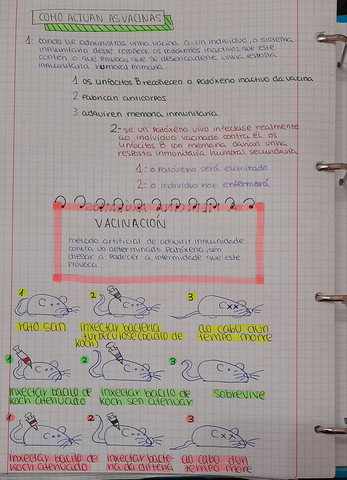 COMO ACTUAN AS VACINAS
1: cando lle administras unha vacina a un individuo, o sistema
inmunitario deste recoñece os patóxenos inactivos que este
contén o que provoca que se desencadene unha resposta
inmunitaria humoral primaria.
1 os linfocitos B recoñecen o patóxeno inactivo da vacina
2 fabrican anticorpos
3 adquiren memoria inmunitaria.
2- se un patóxeno vivo infectase realmente
ao individuo vacinado contra el os
linfocitos B con memoria darían unha
resposta inmunitaria humoral secundaria
1: o patóxeno será eliminado
2: o individuo non enfermará
VACINACIÓN
método artificial de adquirir inmunidade
contra un determinado patóxeno, sen
chegar a padecer a enfermidade que este
provoca.
1 2 3
rato san
inxectar bacteria
tuberculose (bacilo de
koch)
ao cabo dun
tempo morre
1 2 3
inxectar bacilo de
koch atenuado
inxectar bacilo de
koch sen atenuar
sobrevive
1 2 3
inxectar bacilo de
koch atenuado
inxectar bacte-
ria da difteria
ao cabo dun
tempo morre